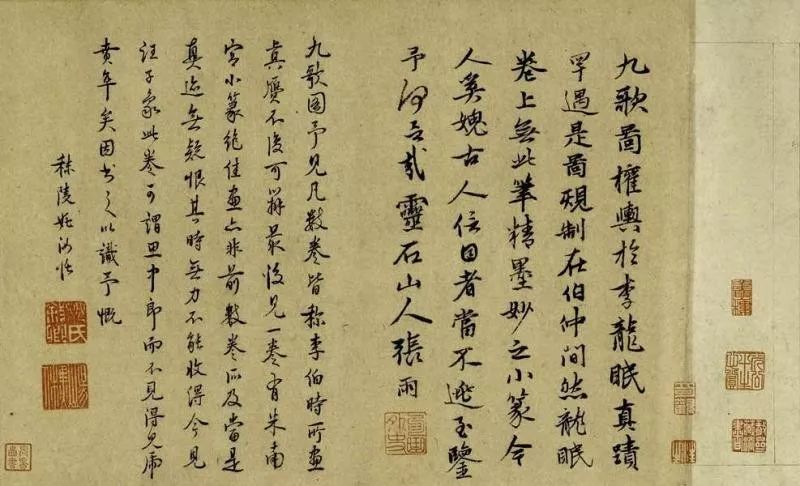 九歌圖權輿於李龍眠真蹟
罕遇是圖規制在伯仲間然龍眠
卷上無此筆精墨妙之小篆今
人奚媿古人信目者當不逃玉鑒
予何言哉靈石山人張雨
九歌圖予見凡數卷皆称李伯時所畫
真贋不復可辨最後見一卷有朱南
宮小篆絶佳畫亦非前數卷所及當是
真迹無疑恨其時無力不能收得今見
汪子家此卷可謂思中郎而不見得見虎
賁年矣因书之以識予慨
秣陵姚汝循